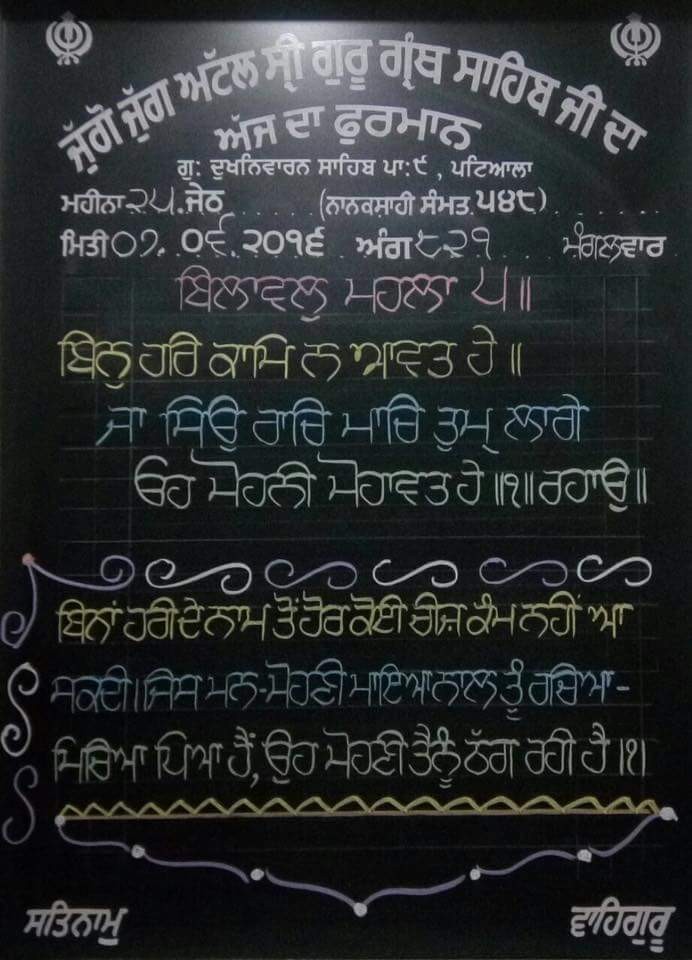 ਜੁੱਗੋ ਜੁੱਗ ਅਟੱਲ ਸ੍ਰੀ ਗੁਰੂ ਗ੍ਰੰਥ ਸਾਹਿਬ ਜੀ ਦਾ
ਅੱਜ ਦਾ ਫੁਰਮਾਨ
ਗੁ: ਦੁਖਨਿਵਾਰਨ ਸਾਹਿਬ ਪਾ:੯ , ਪਟਿਆਲਾ
ਮਹੀਨਾ ੨੫ ਜੇਠ (ਨਾਨਕਸ਼ਾਹੀ ਸੰਮਤ ੫੪੮)
ਮਿਤੀ ੦੭. ੦੬.੨੦੧੬ ਅੰਗ ੮੨੧ ਮੰਗਲਵਾਰ
ਬਿਲਾਵਲੁ ਮਹਲਾ ੫॥
ਬਿਨੁ ਹਰਿ ਕਾਮਿ ਨ ਆਵਤ ਹੇ ॥
ਜਾ ਸਿਉ ਰਾਚਿ ਮਾਚਿ ਤੁਮ੍ਹ ਲਾਗੇ
ਓਹ ਮੋਹਨੀ ਮੋਹਾਵਤ ਹੇ ॥੧॥ ਰਹਾਉ॥
ਬਿਨਾਂ ਹਰੀ ਦੇ ਨਾਮ ਤੋਂ ਹੋਰ ਕੋਈ ਚੀਜ਼ ਕੰਮ ਨਹੀਂ ਆ
ਸਕਦੀ। ਜਿਸ ਮਨ-ਮੋਹਣੀ ਮਾਇਆ ਨਾਲ ਤੂੰ ਰਚਿਆ-
ਮਿਚਿਆ ਪਿਆ ਹੈਂ, ਉਹ ਮੋਹਣੀ ਤੈਨੂੰ ਠੱਗ ਰਹੀ ਹੈ।੧।
ਸਤਿਨਾਮੁ
ਵਾਹਿਗੁਰੂ